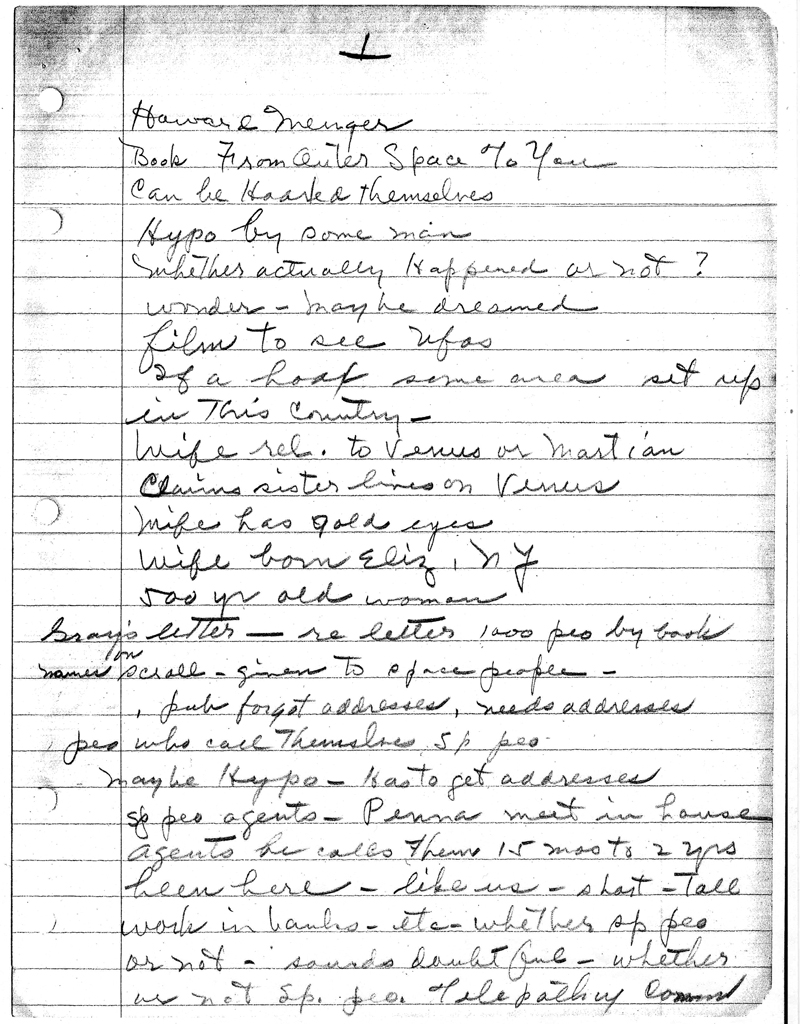 1
Howard Menger
Book From Outer Space To You
Can be Hoaxed themselves
Hypo by some man
Whether actually Happened or not ?
wonder - maybe dreamed
film to see Ufos
If a hoax some area set up
in This Country -
Wife rel. to Venus or Martian
Claims sister lives on Venus
Wife has gold eyes
Wife born Eliz, NJ
500 yr old woman
Gray's letter - re letter 1000 peo by book
names on scroll - given to space people -
, pub forgot addresses, needs addresses
peo who call Themselves, sp peo
maybe Hypo - Has to get addresses
sp peo agents - Penna meet in house
agents he calls Them 15 mos to 2 yrs
been here - like us - short - Tall
work in banks - etc - whether sp peo
or not - sounds doubtful - whether
or not Sp. peo. Telepathy Comm